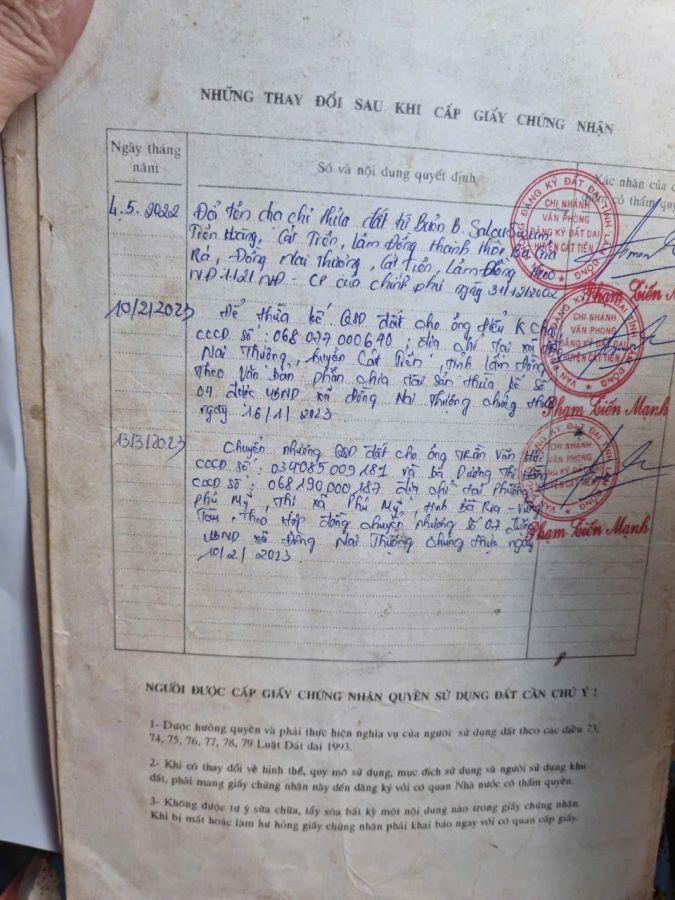 NHỮNG THAY ĐỔI SAU KHI CẤP GIẤY CHỨNG NHẬN
Ngày tháng năm
Số và nội dung quyết định
Xác nhận của c
có thẩm quy
4.5.2022 Đổi tên địa chỉ thửa đất từ Buôn B.
Tiên Hoàng, Cát Tiên, Lâm Đồng thành thôn Bù Gia
Rá, Đồng Nai Thượng, Cát Tiên, Lâm Đồng theo
NĐ: 1121 NĐ - CP của chính phủ ngày 31/12/2002
10/2/2023 Để thừa kế QSD đất cho ông Điểu K
CCCD số: 068077000640; địa chỉ tại xã
Nai Thượng, huyện Cát Tiên, tỉnh Lâm Đồng
Theo Văn bản phân chia tài sản thừa kế số
04 được UBND xã Đồng Nai Thượng chứng thực
ngày 16/1/2023
13/3/2023 Chuyển nhượng QSD đất cho ông Trần Văn
CCCD số: 034085009181 và bà Dương Thị
CCCD số: 068190000187 địa chỉ tại Phường
Phú Mỹ, Thị xã Phú Mỹ, tỉnh Bà Rịa - Vũng
Tàu, Theo Hợp đồng chuyển nhượng số 07 được
UBND xã Đồng Nai Thượng chứng thực ngày
10/2/2023
VĂN PHÒNG ĐĂNG KÝ ĐẤT ĐAI TỈNH LÂM ĐỒNG
CHI NHÁNH
VĂN PHÒNG
ĐĂNG KÝ ĐẤT ĐAI
HUYỆN CÁT TIÊN
Phạm Tiến Mạnh
VĂN PHÒNG ĐĂNG KÝ ĐẤT ĐAI TỈNH LÂM ĐỒNG
CHI NHÁNH
VĂN PHÒNG
ĐĂNG KÝ ĐẤT ĐAI
HUYỆN CÁT TIÊN
Phạm Tiến Mạnh
VĂN PHÒNG ĐĂNG KÝ ĐẤT ĐAI TỈNH LÂM ĐỒNG
CHI NHÁNH
VĂN PHÒNG
ĐĂNG KÝ ĐẤT ĐAI
HUYỆN CÁT TIÊN
Phạm Tiến Mạnh
NGƯỜI ĐƯỢC CẤP GIẤY CHỨNG NHẬN QUYỀN SỬ DỤNG ĐẤT CẦN CHÚ Ý !
1- Được hưởng quyền và phải thực hiện nghĩa vụ của người sử dụng đất theo các điều 73,
74, 75, 76, 77, 78, 79 Luật Đất đai 1993.
2- Khi có thay đổi về hình thể, quy mô sử dụng, mục đích sử dụng và người sử dụng khu
đất, phải mang giấy chứng nhận này đến đăng ký với cơ quan Nhà nước có thẩm quyền.
3- Không được tự ý sửa chữa, tẩy xóa bất kỳ một nội dung nào trong giấy chứng nhận.
Khi bị mất hoặc làm hư hỏng giấy chứng nhận phải khai báo ngay với cơ quan cấp giấy.